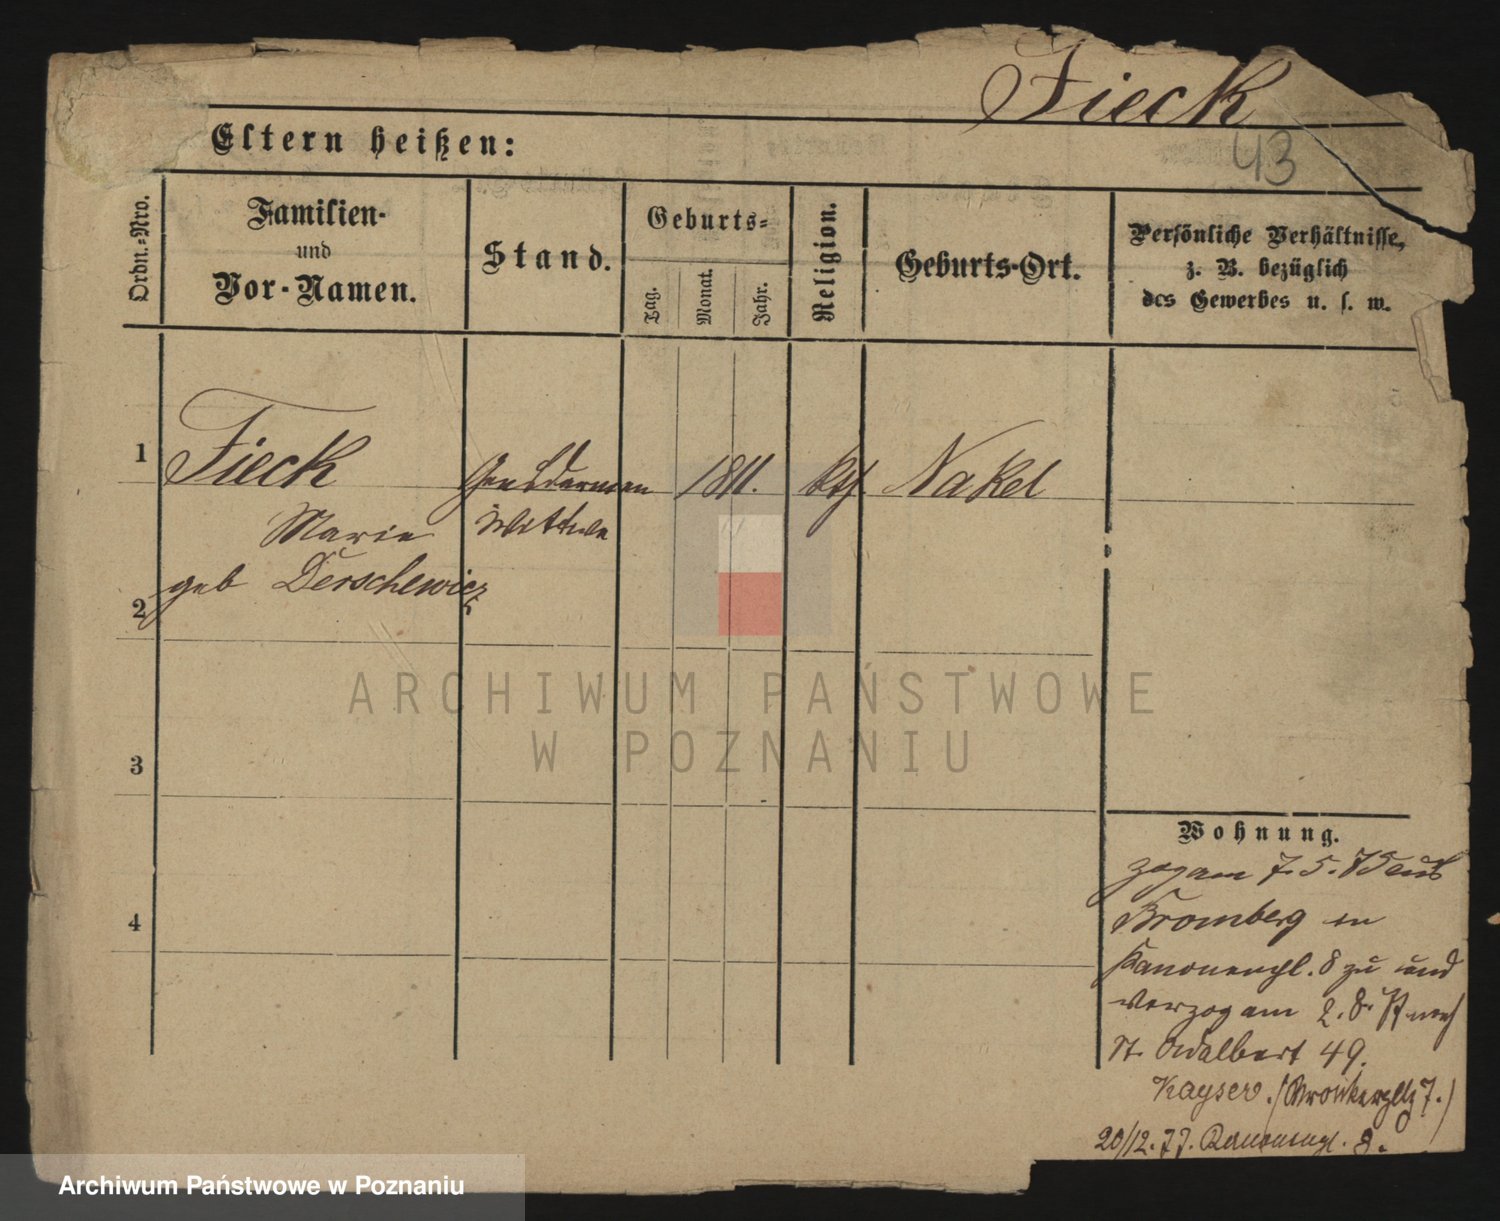 Fieck
43
Eltern heißen:
Ordn.-Nro.
Familien-
und
Vor-Namen.
Stand.
Geburts-
Tag.
Monat.
Jahr.
Religion.
Geburts-Ort.
Persönliche Verhältnisse,
z. B. bezüglich
des Gewerbes u. s. w.
1
Fieck
Gensdarmen
1811.
kth
Nakel
Marie
Wittwe
geb Derschewicz
2
ARCHIWUM PAŃSTWOWE
W POZNANIU
3
4
Wohnung.
zog am 7.5.75 aus
Bromberg in
Kanonenpl. 8 zu und
verzog am 2.8. nach
St. Adalbert 49.
Kayser. (Wronkerplatz 7.)
20/12.77. Kanonenpl. 8.
Archiwum Państwowe w Poznaniu